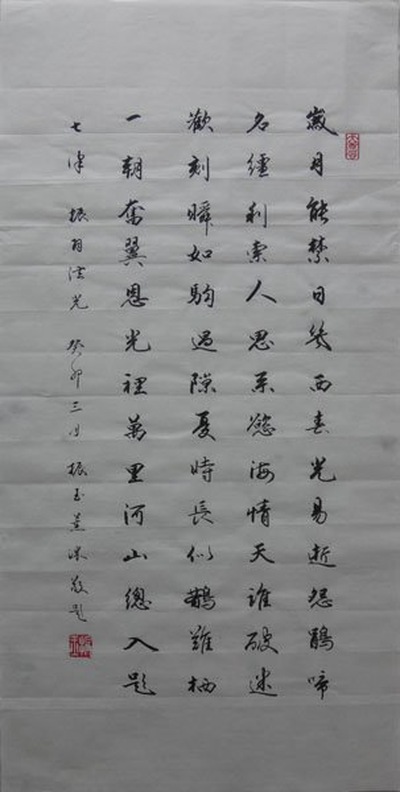 歲月能禁日幾西春光易逝怨鵑啼
名繮利索人思系慾海情天誰破迷
歡刻瞬如駒過隙憂時長似鵲難栖
一朝奮翼恩光裡萬里河山總入題
七律 振羽 光 癸卯三月 振玉 敬題